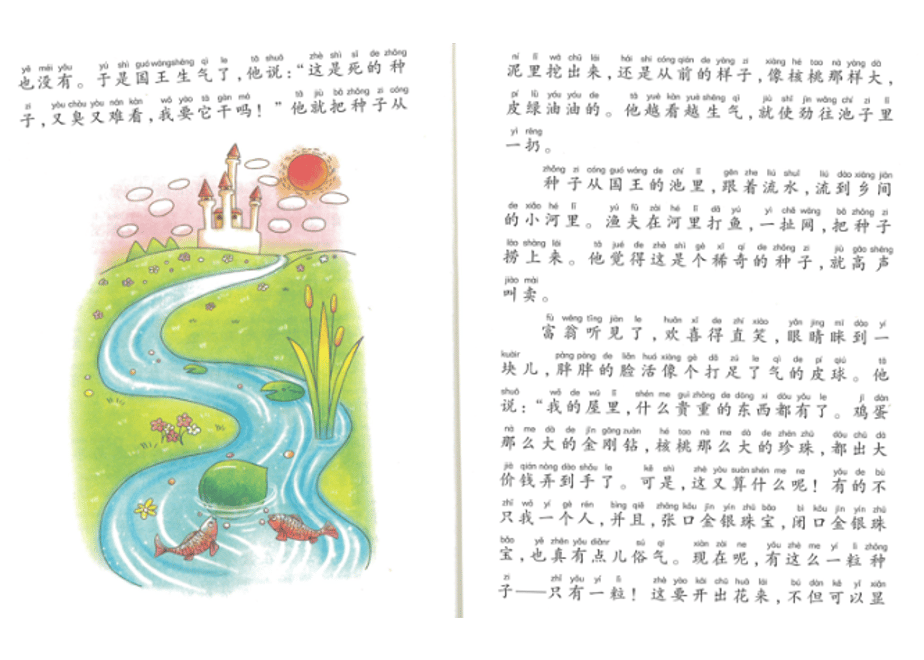 yě méi yǒu yú shì guó wáng shēng qì le tā shuō zhè shì sǐ de zhǒng
也没有。于是国王生气了，他说：“这是死的种
zi yòu chòu yòu nán kàn wǒ yào tā gàn má tā jiù bǎ zhǒng zi cóng
子，又臭又难看，我要它干吗！”他就把种子从
ní lǐ wā chū lái hái shì cóng qián de yàng zi xiàng hé tao nà yàng dà
泥里挖出来，还是从前的样子，像核桃那样大，
pí lǜ yóu yóu de tā yuè kàn yuè shēng qì jiù shǐ jìn wǎng chí zi lǐ
皮绿油油的。他越看越生气，就使劲往池子里
yì rēng
一扔。
zhǒng zi cóng guó wáng de chí lǐ gēn zhe liú shuǐ liú dào xiāng jiān
种子从国王的池里，跟着流水，流到乡间
de xiǎo hé lǐ yú fū zài hé lǐ dǎ yú yì chě wǎng bǎ zhǒng zi
的小河里。渔夫在河里打鱼，一扯网，把种子
lāo shàng lái tā jué de zhè shì gè xī qí de zhǒng zi jiù gāo shēng
捞上来。他觉得这是个稀奇的种子，就高声
jiào mài
叫卖。
fù wēng tīng jiàn le huān xǐ de zhí xiào yǎn jīng mī dào yí
富翁听见了，欢喜得直笑，眼睛眯到一
kuàir pàng pàng de liǎn huó xiàng gè dǎ zú le qì de pí qiú tā
块儿，胖胖的脸活像个打足了气的皮球。他
shuō wǒ de wū lǐ shén me guì zhòng de dōng xi dōu yǒu le jī dàn
说：“我的屋里，什么贵重的东西都有了。鸡蛋
nà me dà de jīn gāng zuàn hé tao nà me dà de zhēn zhū dōu chū dà
那么大的金刚钻，核桃那么大的珍珠，都出大
jià qián nòng dào shǒu le kě shì zhè yòu suàn shén me ne yǒu de bù
价钱弄到手了。可是，这又算什么呢！有的不
zhǐ wǒ yí gè rén bìng qiě zhāng kǒu jīn yín zhū bǎo bì kǒu jīn yín zhū
只我一个人，并且，张口金银珠宝，闭口金银珠
bǎo yě zhēn yǒu diǎnr sú qì xiàn zài ne yǒu zhè me yí lì zhǒng
宝，也真有点儿俗气。现在呢，有这么一粒种
zi zhǐ yǒu yí lì zhè yào kāi chū huā lái bú dàn kě yǐ xiǎn
子——只有一粒！这要开出花来，不但可以显